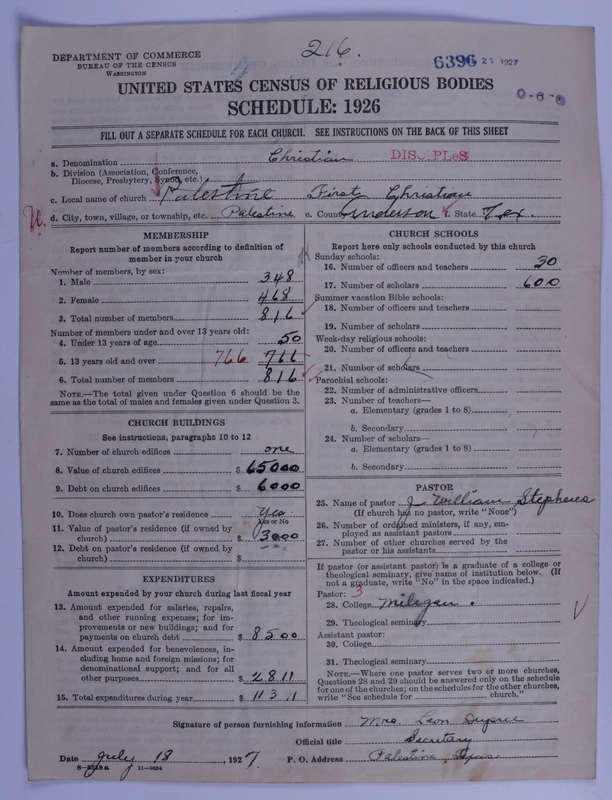 216.
DEPARTMENT OF COMMERCE
BUREAU OF THE CENSUS
WASHINGTON
6396 1927
0-8-0
UNITED STATES CENSUS OF RELIGIOUS BODIES
SCHEDULE: 1926
FILL OUT A SEPARATE SCHEDULE FOR EACH CHURCH. SEE INSTRUCTIONS ON THE BACK OF THIS SHEET
a. Denomination Christian DISCIPLES
b. Division (Association, Conference,
Diocese, Presbytery, Synod, etc.)
c. Local name of church Palestine First Christian
d. City, town, village, or township, etc. Palestine e. County Anderson f. State Tex.
MEMBERSHIP
Report number of members according to definition of
member in your church
Number of members, by sex:
1. Male 348
2. Female 468
3. Total number of members 816
Number of members under and over 13 years old:
4. Under 13 years of age 50
5. 13 years old and over 766
6. Total number of members 816
NOTE.—The total given under Question 6 should be
same as the total of males and females given under Question 3.
CHURCH BUILDINGS
See instructions, paragraphs 10 to 12
7. Number of church edifices one
8. Value of church edifices $ 65000
9. Debt on church edifices $ 6000
10. Does church own pastor's residence Yes
Yes or No
11. Value of pastor's residence (if owned by
church) $ 3000
12. Debt on pastor's residence (if owned by
church) $
EXPENDITURES
Amount expended by your church during last fiscal year
13. Amount expended for salaries, repairs,
and other running expenses; for im-
provements or new buildings; and for
payments on church debt $ 8500
14. Amount expended for benevolences, in-
cluding home and foreign missions; for
denominational support; and for all
other purposes $ 2811
15. Total expenditures during year $ 11311
CHURCH SCHOOLS
Report here only schools conducted by this church
Sunday schools:
16. Number of officers and teachers 30
17. Number of scholars 600
Summer vacation Bible schools:
18. Number of officers and teachers
19. Number of scholars
Week-day religious schools:
20. Number of officers and teachers
21. Number of scholars
Parochial schools:
22. Number of administrative officers
23. Number of teachers—
a. Elementary (grades 1 to 8)
b. Secondary
24. Number of scholars—
a. Elementary (grades 1 to 8)
b. Secondary
PASTOR
25. Name of pastor J. William Stephens
(If church has no pastor, write "None")
26. Number of ordained ministers, if any, em-
ployed as assistant pastors
27. Number of other churches served by the
pastor or his assistants
If pastor (or assistant pastor) is a graduate of a college or
theological seminary, give name of institution below. (If
not a graduate, write "No" in the space indicated.)
Pastor: 3
28. College Milligan.
29. Theological seminary
Assistant pastor:
30. College
31. Theological seminary
NOTE.—Where one pastor serves two or more churches,
Questions 28 and 29 should be answered only on the schedule
for one of the churches; on the schedules for the other churches,
write "See schedule for church."
Signature of person furnishing information Mrs. Leon Dupree
Official title Secretary
Date July 18, 1927 P. O. Address Palestine, Texas
11—9564